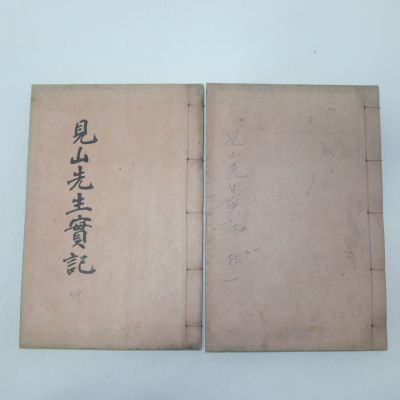 見山先生實記
坤
見山先生實記